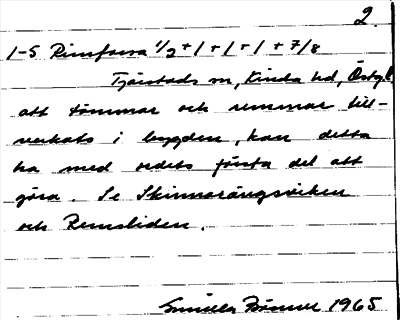 2.
1-5 Rimforsa 1/2 + 1 + 1 + 1 + 7/8
Tjärstads sn, Kinda hd, Östgl.
att tömmar och remmar till-
verkats i bygden, kan detta
ha med ordets första del att
göra. Se Skinnarängsviken
och Remsliden.
Gunilla 1965